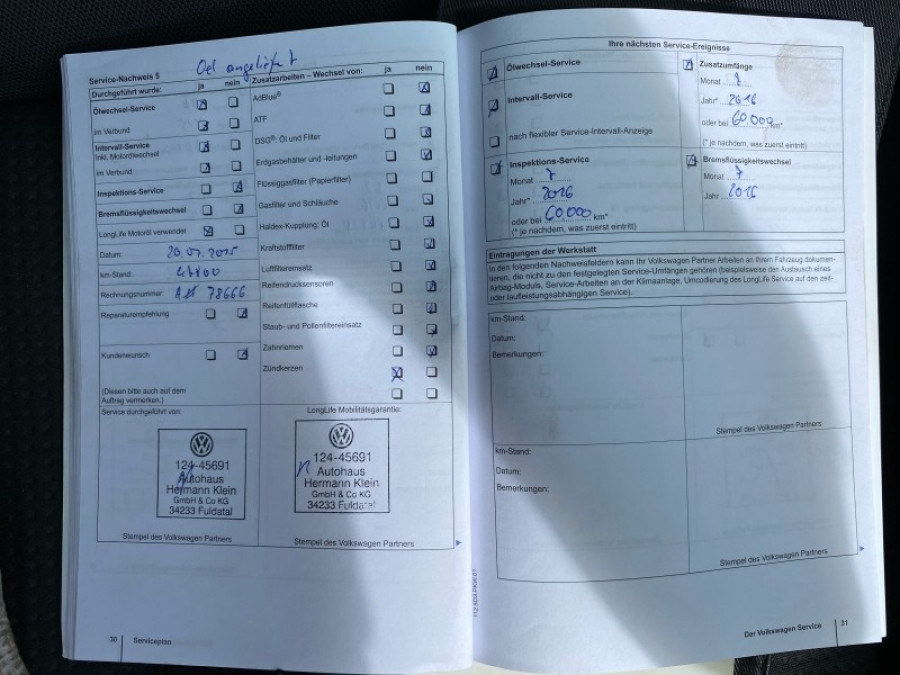 Oel angeliefert
Service-Nachweis 5
Durchgeführt wurde: ja nein
Ölwechsel-Service
im Verbund
Intervall-Service
Inkl. Motorölwechsel
im Verbund
Inspektions-Service
Bremsflüssigkeitswechsel
LongLife Motoröl verwendet
Datum: 20.07.2015
km-Stand:
Rechnungsnummer: 78666
Reparaturempfehlung
Kundenwunsch
(Diesen bitte auch auf dem
Auftrag vermerken.)
Zusatzarbeiten – Wechsel von: ja nein
AdBlue®
ATF
DSG®: Öl und Filter
Erdgasbehälter und -leitungen
Flüssiggasfilter (Papierfilter)
Gasfilter und Schläuche
Haldex-Kupplung: Öl
Kraftstofffilter
Luftfiltereinsatz
Reifendrucksensoren
Reifenfüllflasche
Staub- und Pollenfiltereinsatz
Zahnriemen
Zündkerzen
Service durchgeführt von:
124-45691
Autohaus
Hermann Klein
GmbH & Co KG
34233 Fuldatal
Stempel des Volkswagen Partners
LongLife Mobilitätsgarantie:
124-45691
Autohaus
Hermann Klein
GmbH & Co KG
34233 Fuldatal
Stempel des Volkswagen Partners
30 Serviceplan
Ihre nächsten Service-Ereignisse
Ölwechsel-Service
Intervall-Service
nach flexibler Service-Intervall-Anzeige
Inspektions-Service
Monat 7
Jahr* 2016
oder bei 60.000 km*
(* je nachdem, was zuerst eintritt)
Zusatzumfänge
Monat 7
Jahr* 2016
oder bei 60.000 km*
(* je nachdem, was zuerst eintritt)
Bremsflüssigkeitswechsel
Monat 7
Jahr 2016
Eintragungen der Werkstatt
In den folgenden Nachweisfeldern kann Ihr Volkswagen Partner Arbeiten an Ihrem Fahrzeug dokumen-
tieren, die nicht zu den festgelegten Service-Umfängen gehören (beispielsweise den Austausch eines
Airbag-Moduls, Service-Arbeiten an der Klimaanlage, Umcodierung des LongLife Service auf den zeit-
oder laufleistungsabhängigen Service).
km-Stand:
Datum:
Bemerkungen:
Stempel des Volkswagen Partners
km-Stand:
Datum:
Bemerkungen:
Stempel des Volkswagen Partners
Der Volkswagen Service 31